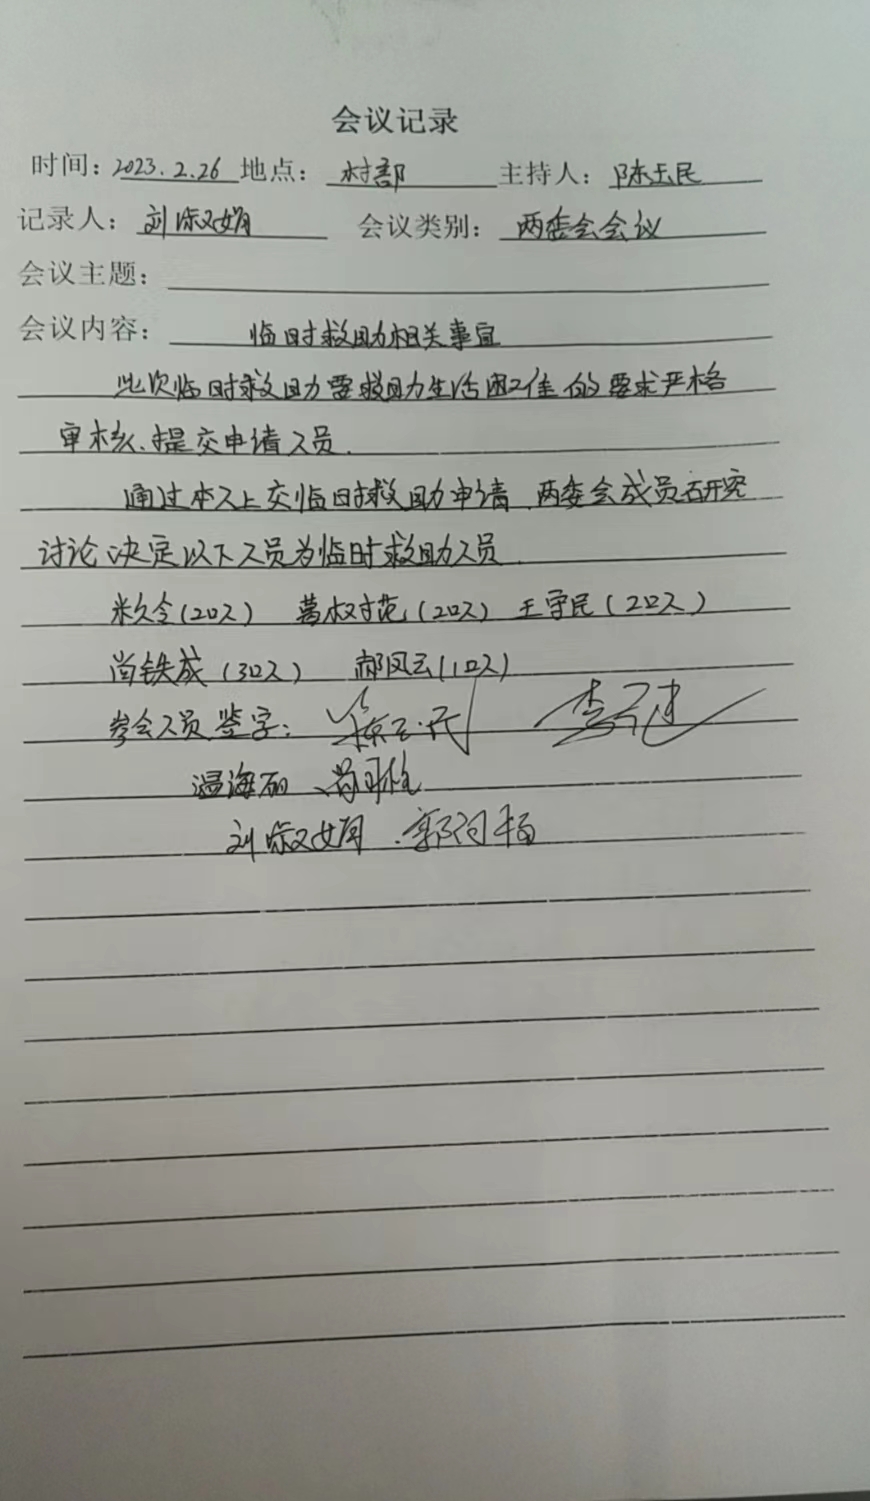 会议记录
时间：2023.2.26 地点：村部 主持人：陈玉民
记录人：刘淑娟 会议类别：两委会会议
会议主题：
会议内容： 临时救助相关事宜
此次临时救助要救助生活困难的要求严格
审核、提交申请人员.
通过本人上交临时救助申请、两委会成员研究
讨论决定以下人员为临时救助人员.
(2口人) (2口人) 王守民(2口人)
尚铁成(3口人) 郝凤云(1口人)
参会人员签字：
温海丽
刘淑娟